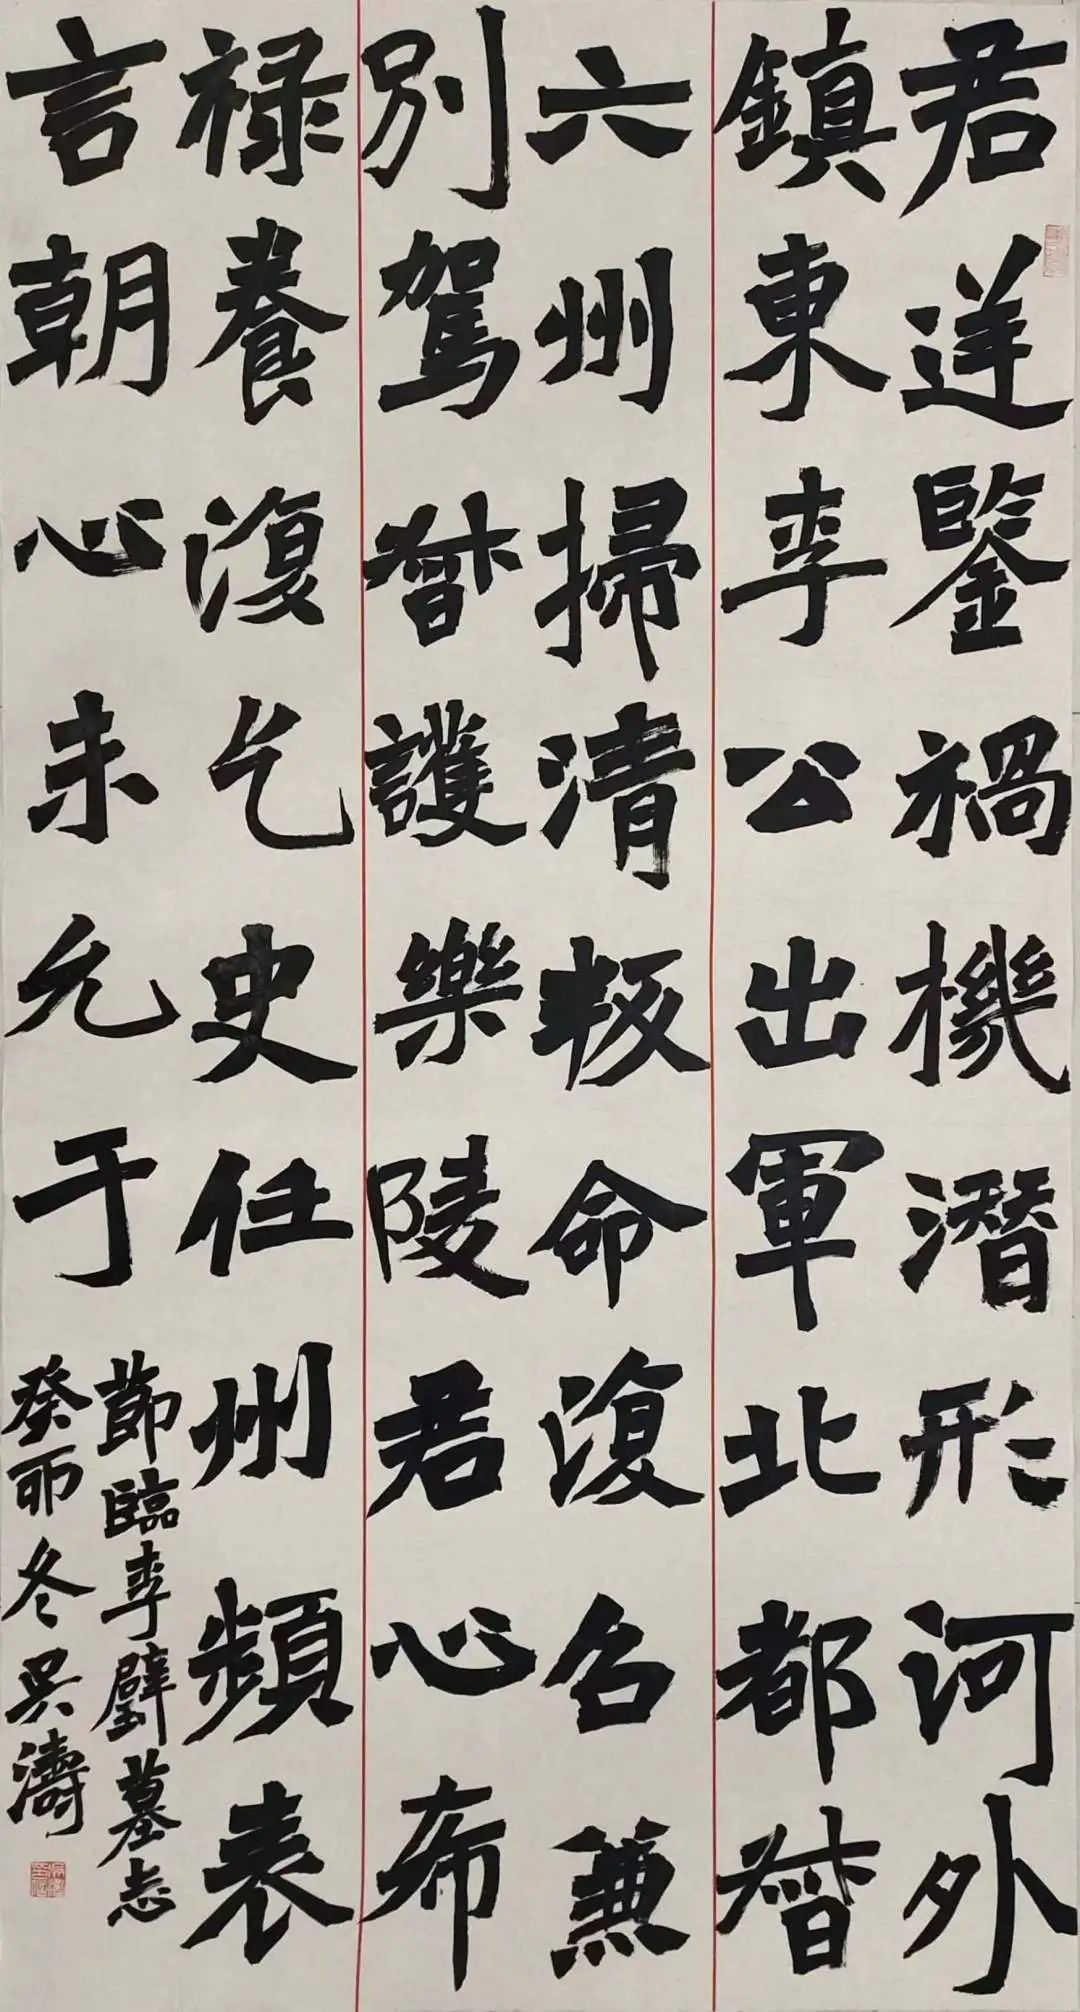 君逆鑒禍機潛形河外
鎮東李公出軍北都督
六州掃清叛命復名兼
別駕督護樂陵君心希
禄養復乞史任州頻表
言朝心未允于
節臨李璧墓志
癸卯冬吴濤